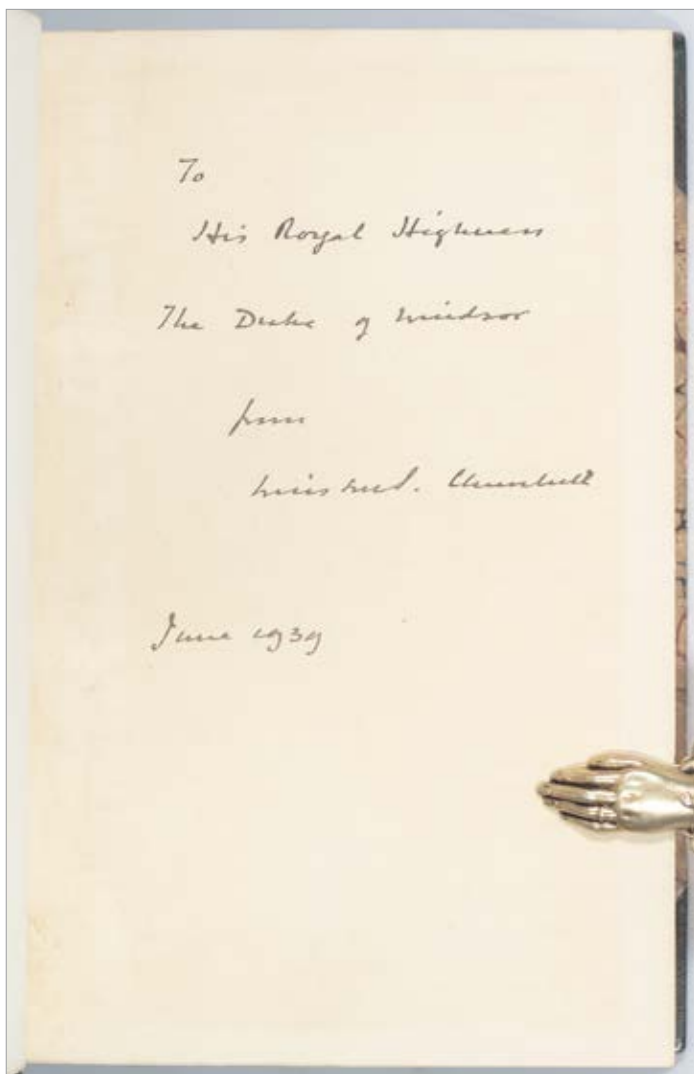 To
His Royal Highness
The Duke of Windsor
from
Winston S. Churchill
June 1939